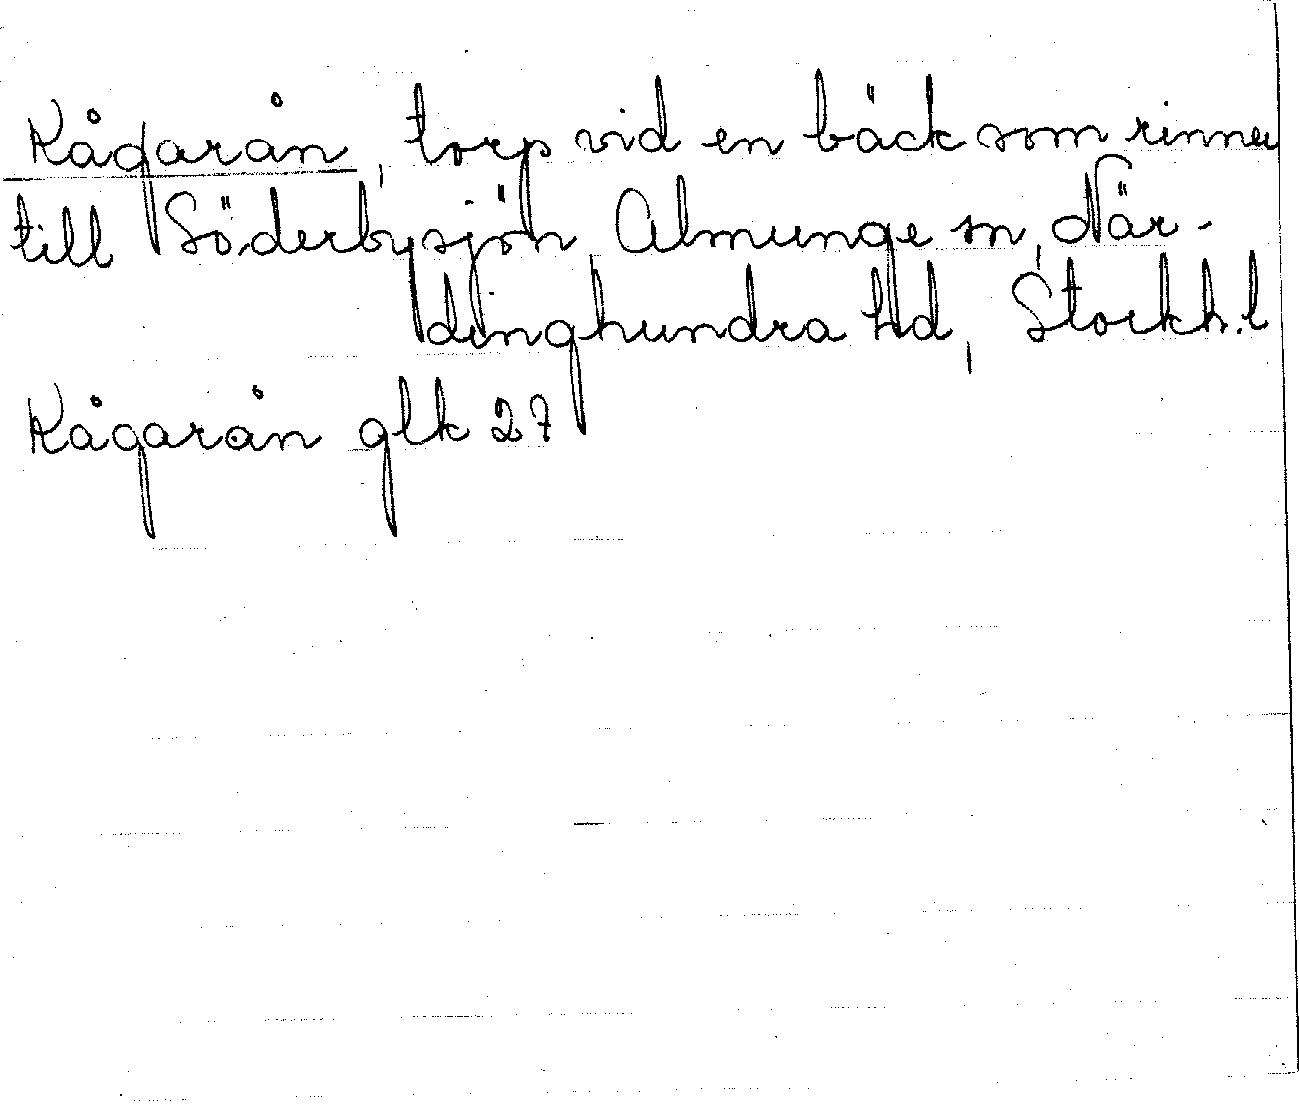 Kågarån, torp vid en bäck som rinner
till Söderbysjön Almunge sn, När-
dinghundra hd, Stockh. l
Kågarån glk 27